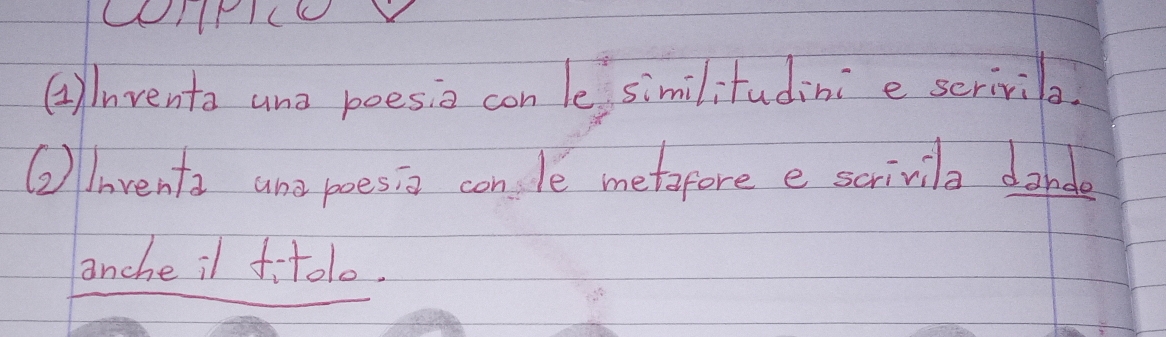 COMPITO
(1) Inventa una poesia con le similitudini e scrivila.
(2) Inventa una poesia con le metafore e scrivila dando
anche il titolo.